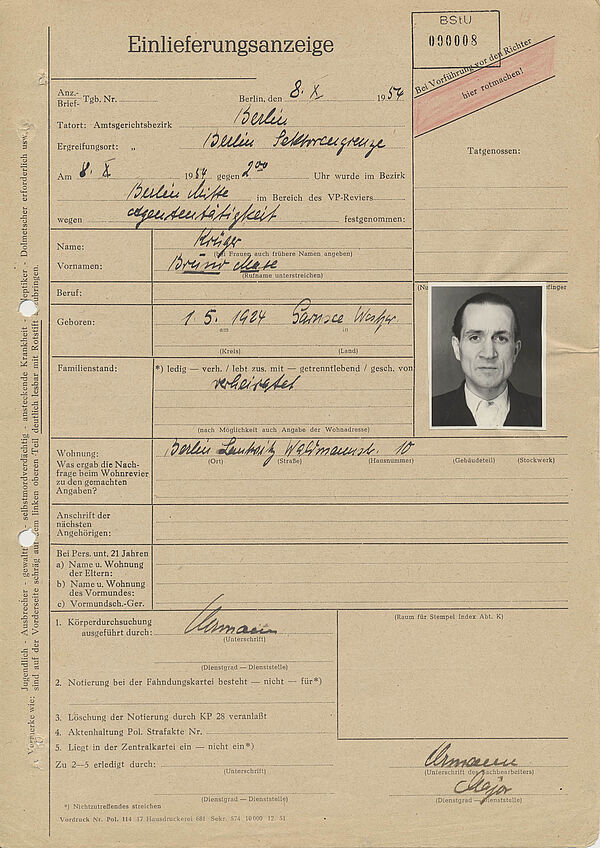 BStU
000008
Einlieferungsanzeige
Bei Vorführung vor den Richter
hier rotmachen!
Anz.-
Brief- Tgb. Nr.
Berlin, den 8. X 1954
Tatort: Amtsgerichtsbezirk Berlin
Ergreifungsort: „ Berlin Sektorengrenze
Tatgenossen:
Am 8. X 1954 gegen 2 00 Uhr wurde im Bezirk
Berlin Mitte im Bereich des VP-Reviers
wegen Agententätigkeit festgenommen:
Name: Krüger
(bei Frauen auch frühere Namen angeben)
Vornamen: Bruno Max
(Rufname unterstreichen)
Beruf:
Geboren: 1. 5. 1924 Garnsee
am in
(Kreis) (Land)
Familienstand: *) ledig — verh. / lebt zus. mit — getrenntlebend / gesch. von
verheiratet
(nach Möglichkeit auch Angabe der Wohnadresse)
Wohnung: Berlin Lankwitz Waldmannstr. 10
(Ort) (Straße) (Hausnummer) (Gebäudeteil) (Stockwerk)
Was ergab die Nach-
frage beim Wohnrevier
zu den gemachten
Angaben?
Anschrift der
nächsten
Angehörigen:
Bei Pers. unt. 21 Jahren
a) Name u. Wohnung
der Eltern:
b) Name u. Wohnung
des Vormundes:
c) Vormundsch.-Ger.
1. Körperdurchsuchung
ausgeführt durch:
(Unterschrift)
(Dienstgrad — Dienststelle)
(Raum für Stempel Index Abt. K)
2. Notierung bei der Fahndungskartei besteht — nicht — für*)
3. Löschung der Notierung durch KP 28 veranlaßt
4. Aktenhaltung Pol. Strafakte Nr.
5. Liegt in der Zentralkartei ein — nicht ein*)
Zu 2—5 erledigt durch:
(Unterschrift)
(Unterschrift des Sachbearbeiters)
Major
(Dienstgrad — Dienststelle)
(Dienstgrad — Dienststelle)
*) Nichtzutreffendes streichen
Vordruck Nr. Pol. 114 17 Hausdruckerei 681 Sekr. 574 10000 12. 51